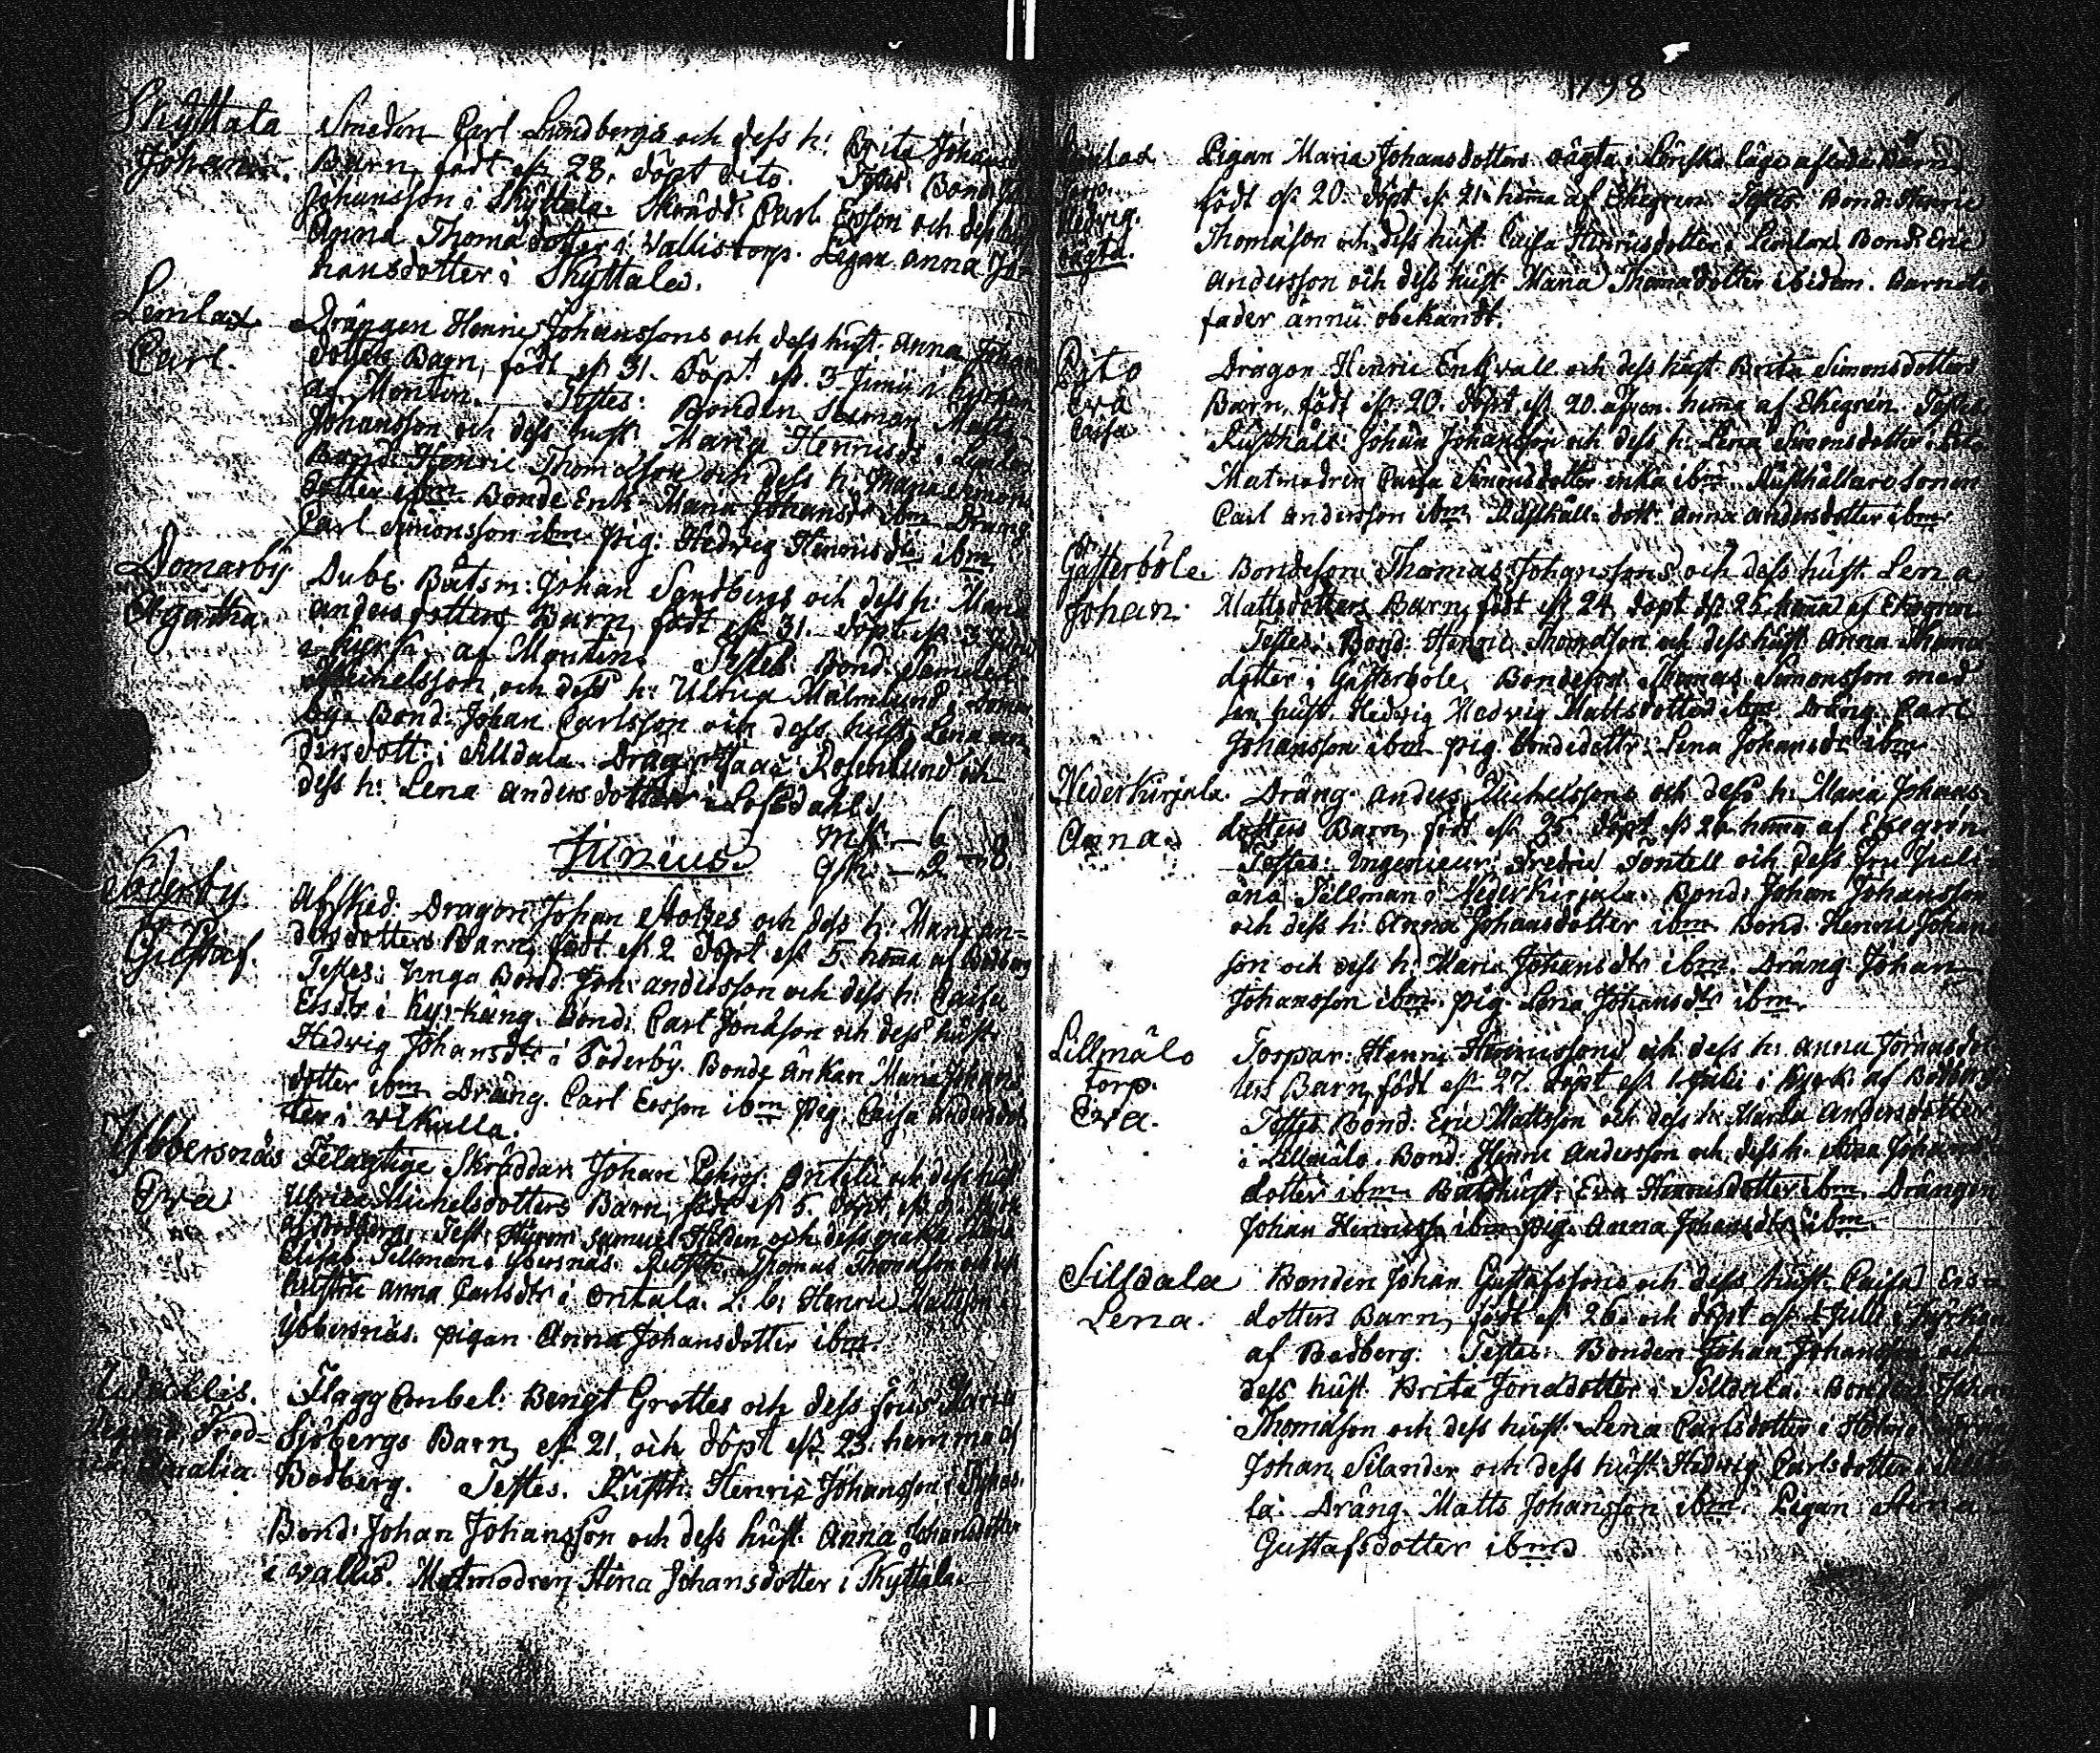 Skyttala
Johan
Smeden Carl Lundbergs och dess h: Brita Johans
Barn, födt d. 28. döpt dito. Testes: Bond:
Johansson i Skyttala. Skrädd: Carl Ersson och dess
Anna Thomædotter i Vallistorp. Pigan Anna Jo-
hansdotter i Skyttala.
Lemlax
Carl.
Drängen Henric Johanssons och dess hust: Anna Johans
dotters Barn, födt d. 31. Döpt d. 3 Junii i kyrkan
af Montin. Testes: Bonden Matts
Johansson och dess hust: Maria Henricsdr i Lemlax
Bond: Henric Thomasson och dess h: Maria Simons
dotter ibm Bonde Enk: Maria Johansdr ibm Dräng
Carl Simonsson ibm pig: Hedvig Henricsdr ibm
Domarby
Agatha
Dubl. Båtsm: Johan Sandbergs och dess h: Maria
Anders dotters Barn födt d. 31. döpt d. 3 Junii
i kyrk: af Montin. Testes: Bond:
Michelsson och dess h: Ulrica Malmlund i Domar
by. Bond: Johan Carlsson och dess hust: Lena An
dersdott: i Silldala. Drag: Isaac Rosenlund och
dess h: Lena Andersdotter i Lofsdahl.
Mk. — 6
Junius.
Qk. — 2 — 8
Söderby.
Gustaf.
Afsked: Dragon Johan Stolzes och dess h: Maria An-
dersdotters Barn, födt d. 2 döpt d. 5. hema af Bodberg
Testes: Unga Bond: Joh: Andersson och dess h: Caisa
Ersdtr i Kyrkäng. Bond: Carl Jonasson och dess hust:
Hedvig Johansdtr i Söderby. Bonde Änkan Maria Johans
dotter ibm Dräng. Carl Ersson ibm Pig: Caisa Andersdot
ter i
Ybbersnäs
Eva
Felagtige Skräddar: Johan och dess hust
Ulrica Michelsdotters Barn, födt d. 5. döpt d. 9. kyrk
af Bodberg. Test: Samuel Hilden och dess maka Maria
Elisab: Tillman i Ybbersnäs. Rusth: Thomas Thomasson och dess
hustru Anna Carlsdtr i Ontala. Henric Mattsson
Ybbersnäs. pigan Anna Johansdotter ibm.
Fred-
Amalia.
Flagg Conbel: Bengt Grottes och dess fru Maria
Sjöbergs Barn, d. 21, och döpt d. 23. hemma af
Bodberg. Testes. Rusth: Henric Johansson i
Bond: Johan Johansson och dess hust: Anna Johansdotter
i Vallis. Matmodren Stina Johansdotter i Skyttala.
1798
Lemlax
Torp.
Hedvig.
oägta.
Pigan Maria Johansdotters oägta i Lönska läge aflade Barn,
födt d. 20. döpt d. 21. hema af Ekegren. Testes: Bond: Henric
Thomasson och dess hust: Caisa Henricsdotter i Lemlax, Bond: Eric
Andersson och dess hust: Maria Thomædotter ibidem. Barnets
fader ännu obekandt.
Pyto
Eva
Caisa
Dragon Henric Enkvall och dess hust: Brita Simonsdotters
Barn, födt d. 20. döpt d. 20. hema af Ekegren. Testes
Rusthåll: Johan Johansson och dess h: Lena Simonsdotter
Matmodren Caisa Simonsdotter enka ibm. Rusthållare sonen
Carl Andersson ibm. Rusthåll: dott: Anna Andersdotter ibm.
Gästerböle.
Johan.
Bondeson Thomas Johanssons och dess hust. Lena
Mattsdotters Barn, födt d. 24. döpt d. 25. hema af Ekegren
Testes: Bond: Henric Thomasson och dess hust: Anna Thomæ
dotter i Gästerböle. Bondeson Thomas Simonsson med
sin hust. Hedvig Hedvig Mattsdotter ibm. Dräng. Carl
Johansson ibm. pig. bondedottr: Lena Johansdr ibm
Nederkirjala.
Anna.
Dräng. Anders Michelssons och dess h: Maria Johans-
dotters Barn, födt d. 25. döpt d. 26. hema af Ekegren.
Testes: Ingenieur: Fredric Fontell och dess fru Juli
ana Tillman i Nederkirjala. Bond: Johan Johansson
och dess h: Anna Johansdotter ibm. Bond. Henric Johans
son och dess h: Maria Johansdtr ibm. Dräng. Johan
Johansson ibm. pig. Lena Johansdtr ibm.
Lillmälo
torp.
Eva.
Torpar: Henric Henricssons och dess h: Anna Jöransdot
ters Barn födt d. 27. döpt d. 1 Julii i kyrk: af Bodberg
Testes Bond: Eric Mattsson och dess h: Maria Andersdotter
i Lillmälo. Bond: Henric Andersson och dess h. Anna Johans
dotter ibm. Båtshust: Eva Henricsdotter ibm. Drängen
Johan Henricss: ibm pig. Anna Johansdtr ibm.
Silldala
Lena.
Bonden Johan Gustafssons och dess hust: Caisa Ers
dotters Barn, födt d. 26. och döpt d. 1 Julii i kyrkan
af Bodberg. Testes: Bonden Johan Johansson och
dess hust: Brita Jonædotter i Silldala. Bonden Johan
Thomasson och dess hust: Lena Carlsdotter i
Johan Silander och dess hust: Hedvig Carlsdotter i
la. Dräng. Matts Johansson ibm. Pigan Stina
Gustafsdotter ibm.